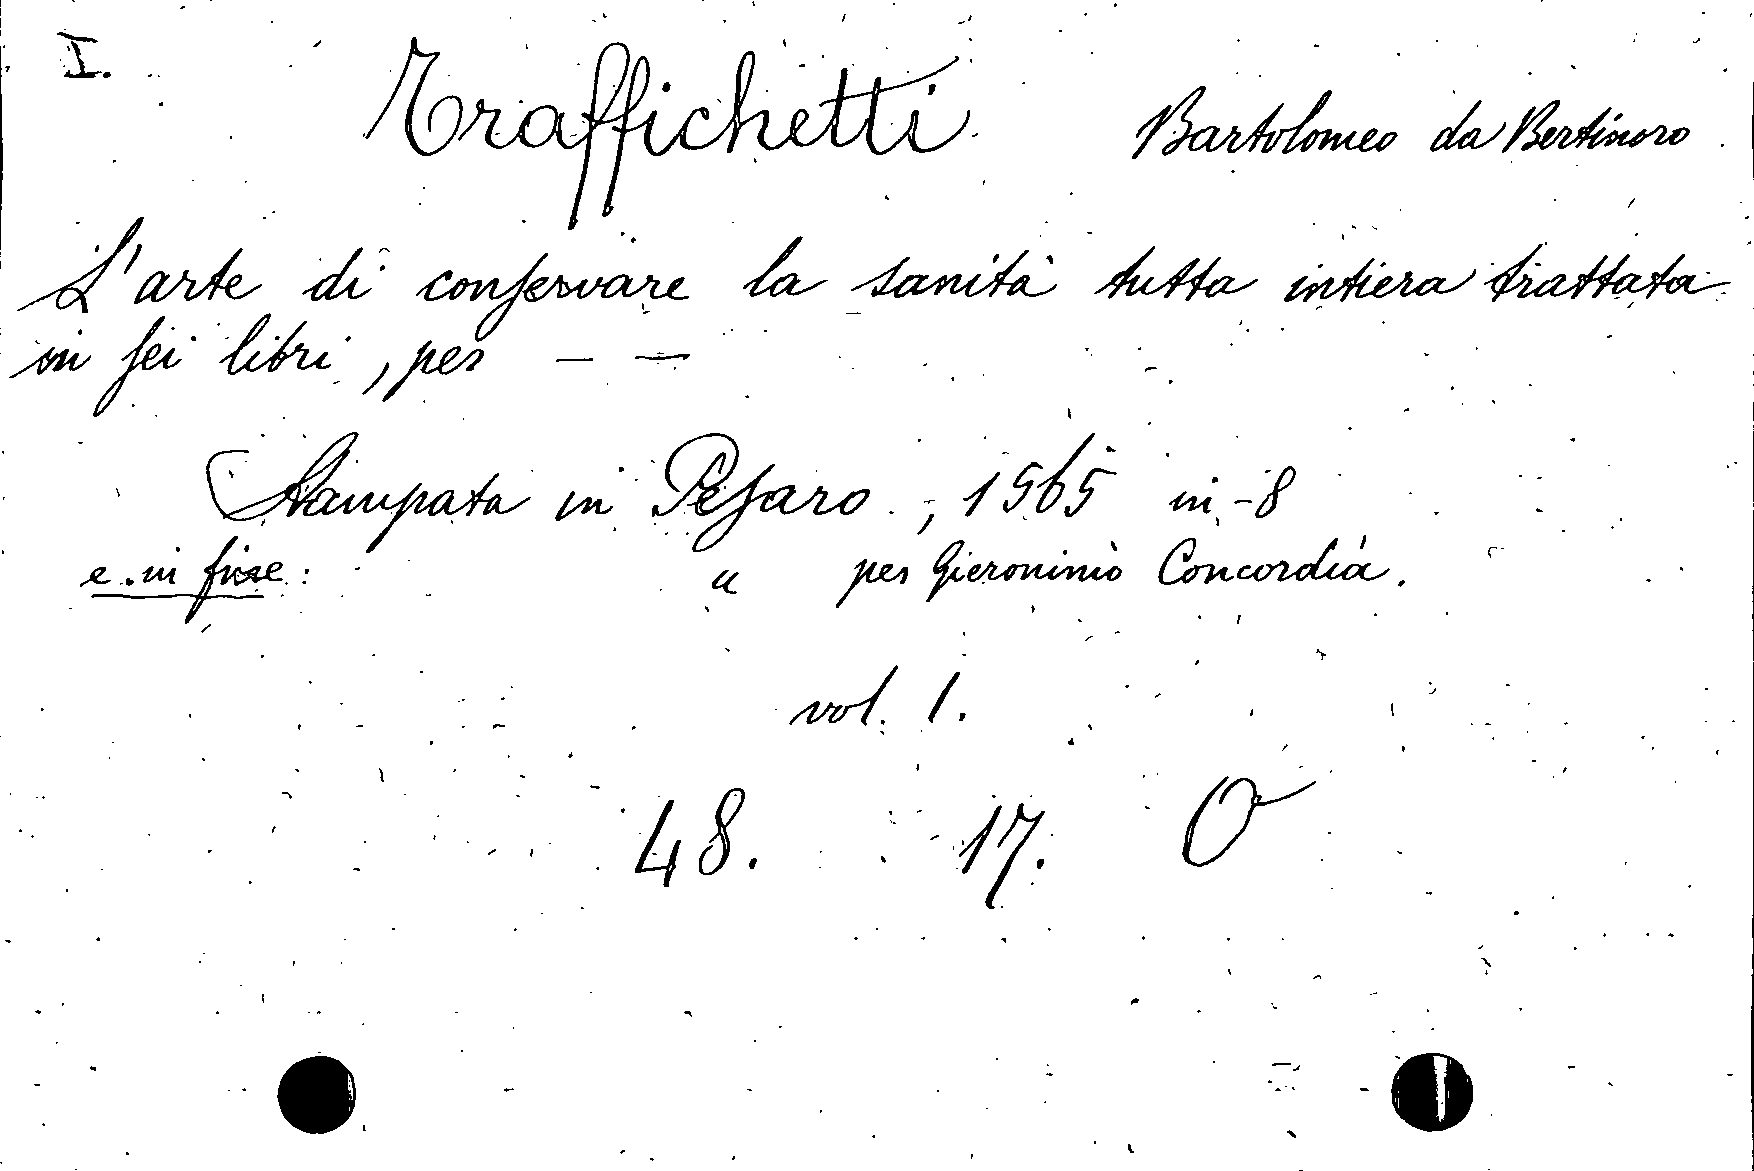 I. Traffichetti Bartolomeo da Bertinoro
L'arte di conservare la sanità tutta intiera trattata
in sei libri, per — —
Stampata in Pesaro, 1565 in-8
e in fine: " per Gieronimo Concordia.
vol. 1.
48. 17. O